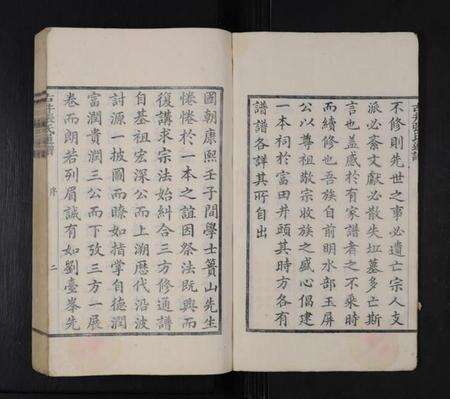 不修則先世之事必遺亡宗人支
派必紊文獻必散失坵墓多亡斯
言也蓋感於有家譜者之不乘時
而續修也吾族自前明水部玉屏
公以尊祖敬宗收族之盛心倡建
一本祠於富田井頭其時方各有
譜譜各詳其所自出
國朝康熙壬子間學士簣山先生
惓惓於一本之誼因祭法既興而
復講求宗法始糾合三方修通譜
自基祖宏深公而上溯厯代沿波
討源一披圖而瞭如指掌自德潤
富潤貴潤三公而下攷三方一展
卷而朗若列眉誠有如劉臺峯先
序
二